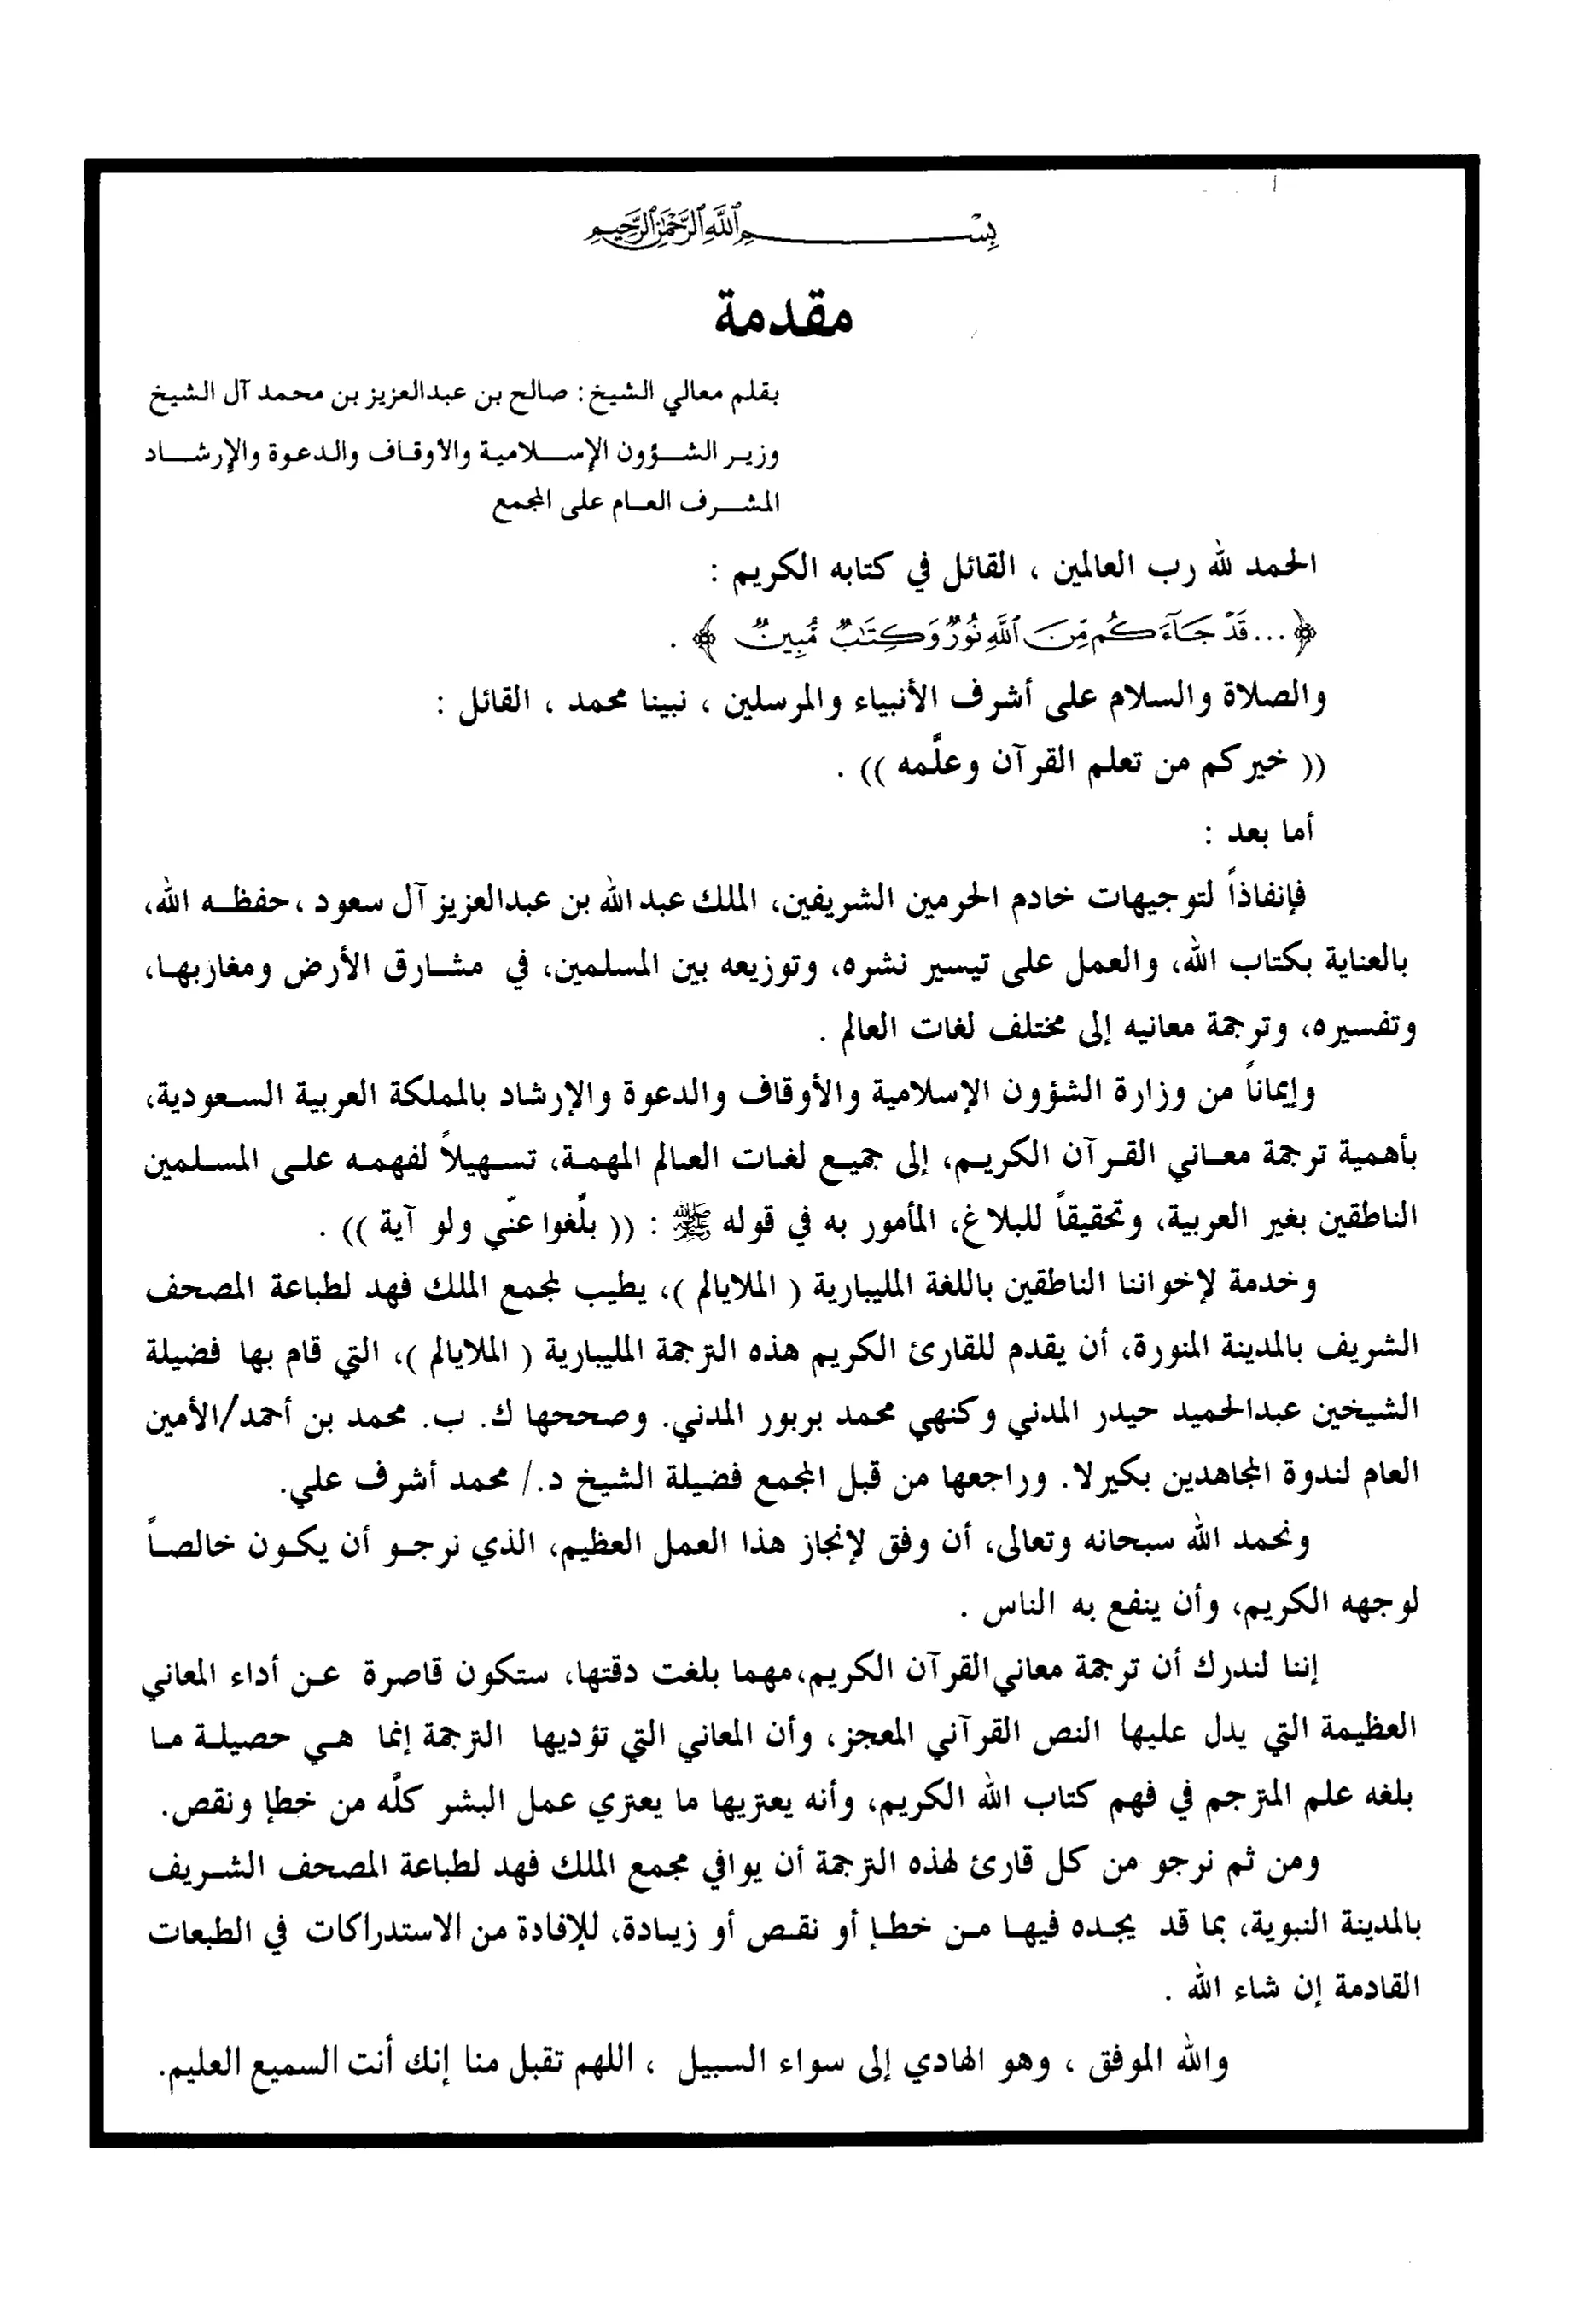 بِسْمِ ٱللَّهِ ٱلرَّحْمَٰنِ ٱلرَّحِيمِ
مقدمة
بقلم معالي الشيخ: صالح بن عبدالعزيز بن محمد آل الشيخ
وزير الشؤون الإسلامية والأوقاف والدعوة والإرشاد
المشرف العام على المجمع
الحمد لله رب العالمين ، القائل في كتابه الكريم :
﴿ ... قَدْ جَآءَكُم مِّنَ ٱللَّهِ نُورٌ وَكِتَٰبٌ مُّبِينٌ ﴾ .
والصلاة والسلام على أشرف الأنبياء والمرسلين ، نبينا محمد ، القائل :
(( خيركم من تعلم القرآن وعلَّمه )) .
أما بعد :
فإنفاذاً لتوجيهات خادم الحرمين الشريفين، الملك عبدالله بن عبدالعزيز آل سعود ، حفظه الله،
بالعناية بكتاب الله، والعمل على تيسير نشره، وتوزيعه بين المسلمين، في مشارق الأرض ومغاربها،
وتفسيره، وترجمة معانيه إلى مختلف لغات العالم .
وإيماناً من وزارة الشؤون الإسلامية والأوقاف والدعوة والإرشاد بالمملكة العربية السعودية،
بأهمية ترجمة معاني القرآن الكريم، إلى جميع لغات العالم المهمة، تسهيلاً لفهمه على المسلمين
الناطقين بغير العربية، وتحقيقاً للبلاغ، المأمور به في قوله ﷺ : (( بلِّغوا عنّي ولو آية )) .
وخدمة لإخواننا الناطقين باللغة المليبارية ( الملايالم )، يطيب لمجمع الملك فهد لطباعة المصحف
الشريف بالمدينة المنورة، أن يقدم للقارئ الكريم هذه الترجمة المليبارية ( الملايالم )، التي قام بها فضيلة
الشيخين عبدالحميد حيدر المدني وكنهي محمد بربور المدني. وصححها ك. ب. محمد بن أحمد/الأمين
العام لندوة المجاهدين بكيرلا. وراجعها من قبل المجمع فضيلة الشيخ د./ محمد أشرف علي.
ونحمد الله سبحانه وتعالى، أن وفق لإنجاز هذا العمل العظيم، الذي نرجو أن يكون خالصاً
لوجهه الكريم، وأن ينفع به الناس .
إننا لندرك أن ترجمة معاني القرآن الكريم،مهما بلغت دقتها، ستكون قاصرة عن أداء المعاني
العظيمة التي يدل عليها النص القرآني المعجز، وأن المعاني التي تؤديها الترجمة إنما هي حصيلة ما
بلغه علم المترجم في فهم كتاب الله الكريم، وأنه يعتريها ما يعتري عمل البشر كلَّه من خطإ ونقص.
ومن ثم نرجو من كل قارئ لهذه الترجمة أن يوافي مجمع الملك فهد لطباعة المصحف الشريف
بالمدينة النبوية، بما قد يجده فيها من خطإ أو نقص أو زيادة، للإفادة من الاستدراكات في الطبعات
القادمة إن شاء الله .
والله الموفق ، وهو الهادي إلى سواء السبيل ، اللهم تقبل منا إنك أنت السميع العليم.